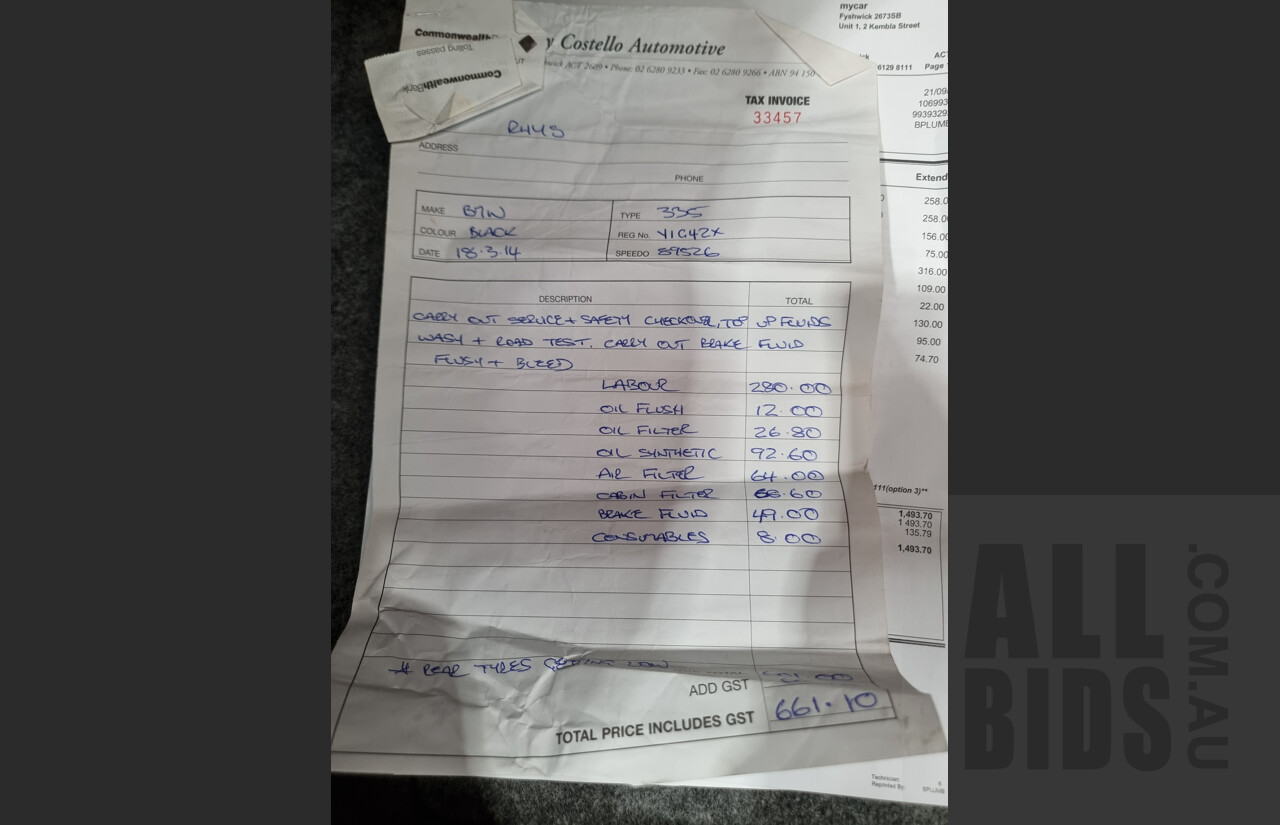 mycar
Fyshwick 2673SB
Unit 1, 2 Kembla Street
6129 8111 Page
21/09
106993
9939329
BPLUMB
Extend
258.0
258.0
156.00
75.00
316.00
109.00
22.00
130.00
95.00
74.70
111(option 3)**
1,493.70
1 493.70
135.79
1,493.70
Technician:
Reprinted By:
Commonwealth
Tolling passes
CommonwealthBank
y Costello Automotive
wick ACT 2609 • Phone: 02 6280 9233 • Fax: 02 6280 9266 • ABN 94 150
TAX INVOICE
33457
RHYS
ADDRESS
PHONE
MAKE BMW TYPE 335
COLOUR BLACK REG No. YIG42X
DATE 18.3.14 SPEEDO 89526
DESCRIPTION TOTAL
CARRY OUT SERVICE + SAFETY CHECKOVER, TOP UP FLUIDS
WASH + ROAD TEST. CARRY OUT BRAKE FLUID
FLUSH + BLEED
LABOUR 280.00
OIL FLUSH 12.00
OIL FILTER 26.80
OIL SYNTHETIC 92.60
AIR FILTER 64.00
CABIN FILTER 68.60
BRAKE FLUID 49.00
CONSUMABLES 8.00
# REAR TYRES GETTING LOW
ADD GST
TOTAL PRICE INCLUDES GST 661.10
ALL
BIDS
.COM.AU